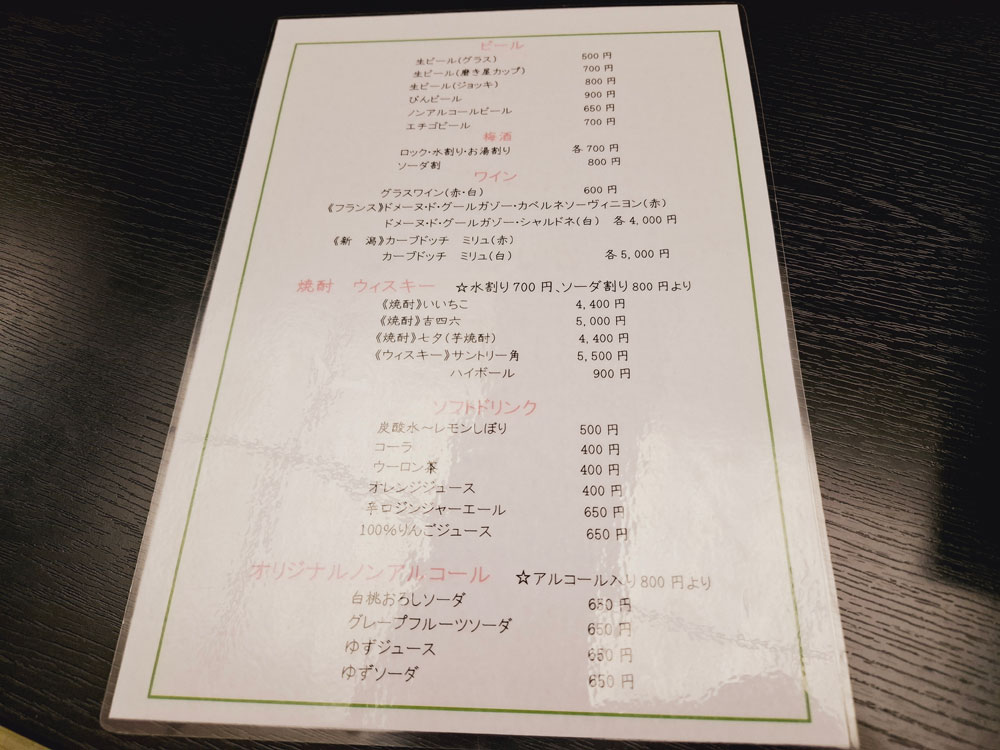 ビール
生ビール(グラス) 500 円
生ビール(磨き屋カップ) 700 円
生ビール(ジョッキ) 800 円
びんビール 900 円
ノンアルコールビール 650 円
エチゴビール 700 円
梅酒
ロック・水割り・お湯割り 各 700 円
ソーダ割 800 円
ワイン
グラスワイン(赤・白) 600 円
《フランス》ドメーヌ・ド・グールガゾー・カベルネソーヴィニヨン(赤)
ドメーヌ・ド・グールガゾー・シャルドネ(白) 各 4,000 円
《新 潟》カーブドッチ ミリュ(赤)
カーブドッチ ミリュ(白) 各 5,000 円
焼酎 ウィスキー ☆水割り 700 円、ソーダ割り 800 円より
《焼酎》いいちこ 4,400 円
《焼酎》吉四六 5,000 円
《焼酎》七夕(芋焼酎) 4,400 円
《ウィスキー》サントリー角 5,500 円
ハイボール 900 円
ソフトドリンク
炭酸水～レモンしぼり 500 円
コーラ 400 円
ウーロン茶 400 円
オレンジジュース 400 円
辛口ジンジャーエール 650 円
100%りんごジュース 650 円
オリジナルノンアルコール ☆アルコール入り 800 円より
白桃おろしソーダ 650 円
グレープフルーツソーダ 650 円
ゆずジュース 650 円
ゆずソーダ 650 円